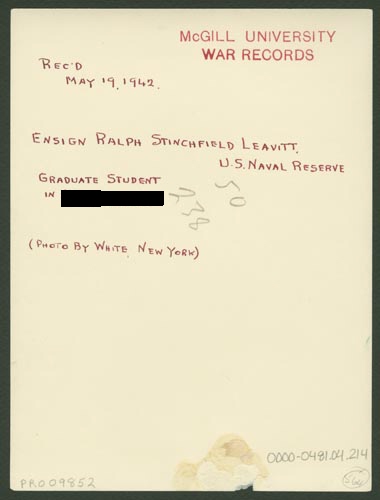 McGILL UNIVERSITY
WAR RECORDS
REC'D
MAY 19, 1942.
ENSIGN RALPH STINCHFIELD LEAVITT.
U.S. NAVAL RESERVE
GRADUATE STUDENT
IN
(PHOTO BY WHITE, NEW YORK)
0000-0481.04.214
PR009852